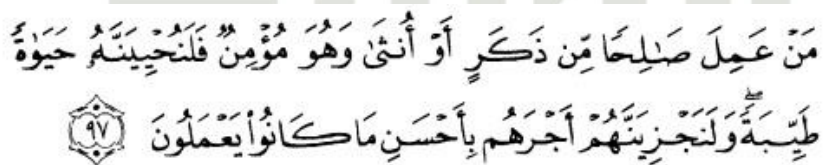 مَنۡ عَمِلَ صَٰلِحٗا مِّن ذَكَرٍ أَوۡ أُنثَىٰ وَهُوَ مُؤۡمِنٞ فَلَنُحۡيِيَنَّهُۥ حَيَوٰةٗ
طَيِّبَةٗۖ وَلَنَجۡزِيَنَّهُمۡ أَجۡرَهُم بِأَحۡسَنِ مَا كَانُواْ يَعۡمَلُونَ ٩٧